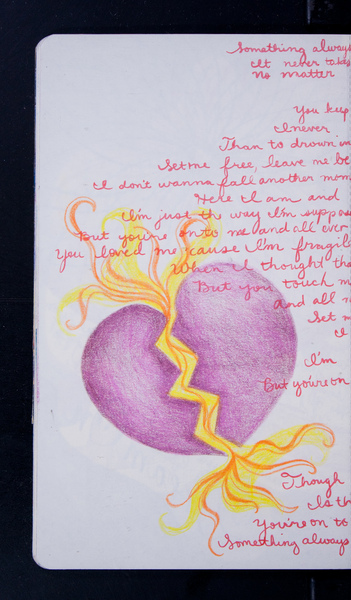 Something always
It never takes
No matter
You keep
I never
Than to drown in
Set me free, leave me be
I don't wanna fall another mom
Here I am and
I'm just the way I'm suppos
But you're on to me and all over
You loved me 'cause I'm fragile
When I thought tha
But you touch m
and all m
Set m
I
I'm
But you're on
Though
Is th
You're on to
Something always